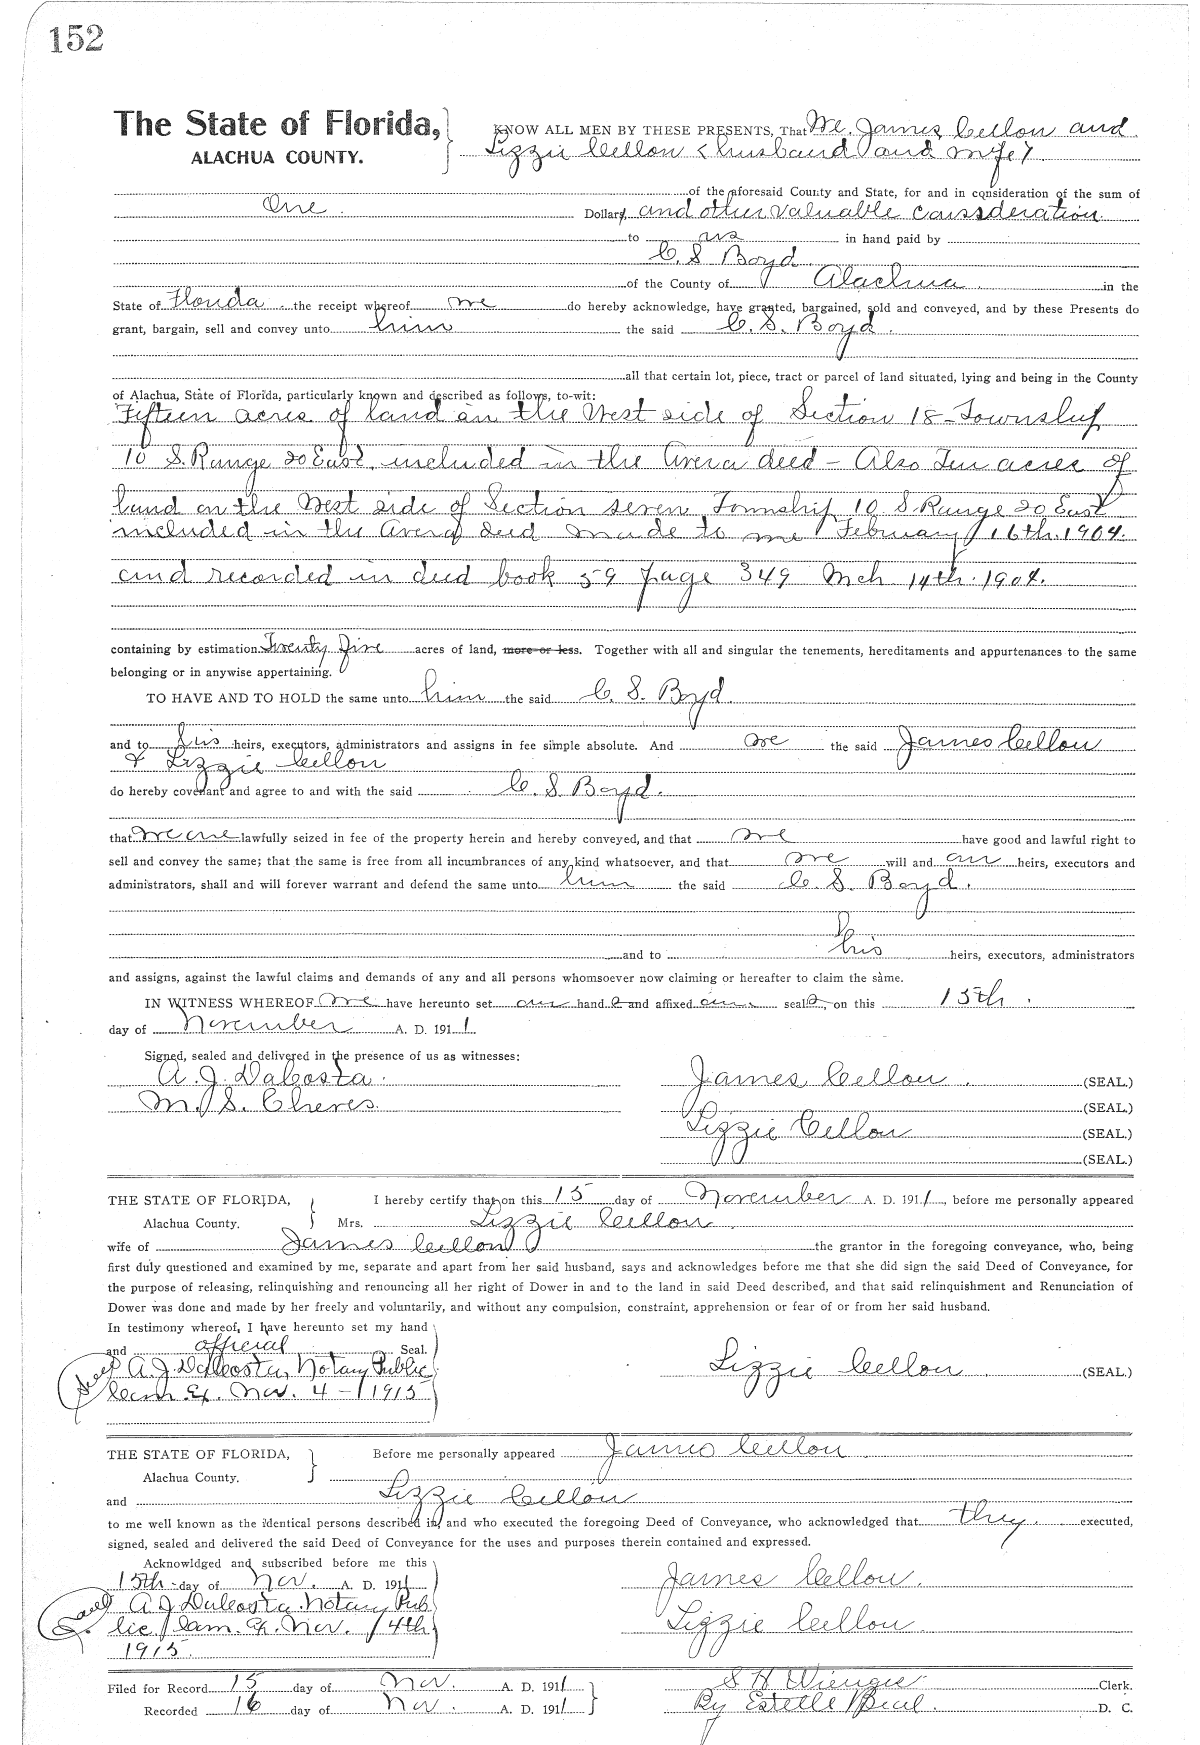 152
The State of Florida,
ALACHUA COUNTY.
KNOW ALL MEN BY THESE PRESENTS, That We, James Cellon and
Lizzie Cellon (husband and wife)
of the aforesaid County and State, for and in consideration of the sum of
One Dollar, and other valuable consideration
to us in hand paid by
C. S Boyd
of the County of Alachua in the
State of Florida the receipt whereof we do hereby acknowledge, have granted, bargained, sold and conveyed, and by these Presents do
grant, bargain, sell and convey unto him the said C. S. Boyd.
all that certain lot, piece, tract or parcel of land situated, lying and being in the County
of Alachua, State of Florida, particularly known and described as follows, to-wit:
Fifteen acres of land on the West side of Section 18 - Township
10 S. Range 20 East, included in the Avera deed - Also Ten acres of
land on the West side of Section seven Township 10 S. Range 20 East
included in the Avera deed made to me February 16th. 1904.
and recorded in deed book 59 page 349 Mch 14th. 1904.
containing by estimation Twenty five acres of land, more or less. Together with all and singular the tenements, hereditaments and appurtenances to the same
belonging or in anywise appertaining.
TO HAVE AND TO HOLD the same unto him the said C. S. Boyd
and to his heirs, executors, administrators and assigns in fee simple absolute. And we the said James Cellon
& Lizzie Cellon
do hereby covenant and agree to and with the said C. S. Boyd.
that we are lawfully seized in fee of the property herein and hereby conveyed, and that we have good and lawful right to
sell and convey the same; that the same is free from all incumbrances of any kind whatsoever, and that we will and our heirs, executors and
administrators, shall and will forever warrant and defend the same unto him the said C. S. Boyd.
and to his heirs, executors, administrators
and assigns, against the lawful claims and demands of any and all persons whomsoever now claiming or hereafter to claim the same.
IN WITNESS WHEREOF we have hereunto set our hand s and affixed our seal s, on this 15th.
day of November A. D. 1911.
Signed, sealed and delivered in the presence of us as witnesses:
A. J. DaCosta. James Cellon. (SEAL.)
M. S. Cheves. (SEAL.)
Lizzie Cellon (SEAL.)
(SEAL.)
THE STATE OF FLORIDA, I hereby certify that on this 15 day of November A. D. 1911, before me personally appeared
Alachua County. Mrs. Lizzie Cellon.
wife of James Cellon the grantor in the foregoing conveyance, who, being
first duly questioned and examined by me, separate and apart from her said husband, says and acknowledges before me that she did sign the said Deed of Conveyance, for
the purpose of releasing, relinquishing and renouncing all her right of Dower in and to the land in said Deed described, and that said relinquishment and Renunciation of
Dower was done and made by her freely and voluntarily, and without any compulsion, constraint, apprehension or fear of or from her said husband.
In testimony whereof, I have hereunto set my hand
and official Seal.
Seal A. J. DaCosta, Notary Public Lizzie Cellon. (SEAL)
Com. Ex. Nov. 4 - 1915
THE STATE OF FLORIDA, Before me personally appeared James Cellon
Alachua County.
and Lizzie Cellon
to me well known as the identical persons described in, and who executed the foregoing Deed of Conveyance, who acknowledged that they executed,
signed, sealed and delivered the said Deed of Conveyance for the uses and purposes therein contained and expressed.
Acknowldged and subscribed before me this
15th day of Nov. A. D. 1911 James Cellon.
Seal A J DaCosta. Notary Pub Lizzie Cellon.
lic Com. Ex. Nov. 4th
1915.
Filed for Record 15 day of Nov. A. D. 1911 S H Wienges Clerk.
Recorded 16 day of Nov. A. D. 1911 By Estelle D. C.